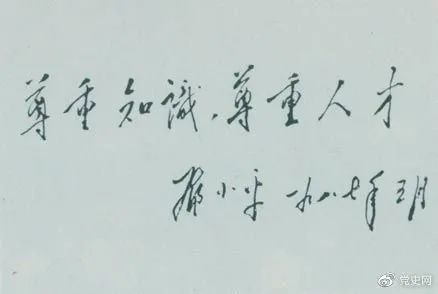 尊重知識,尊重人才
邓小平 一九八七年五月
党史网